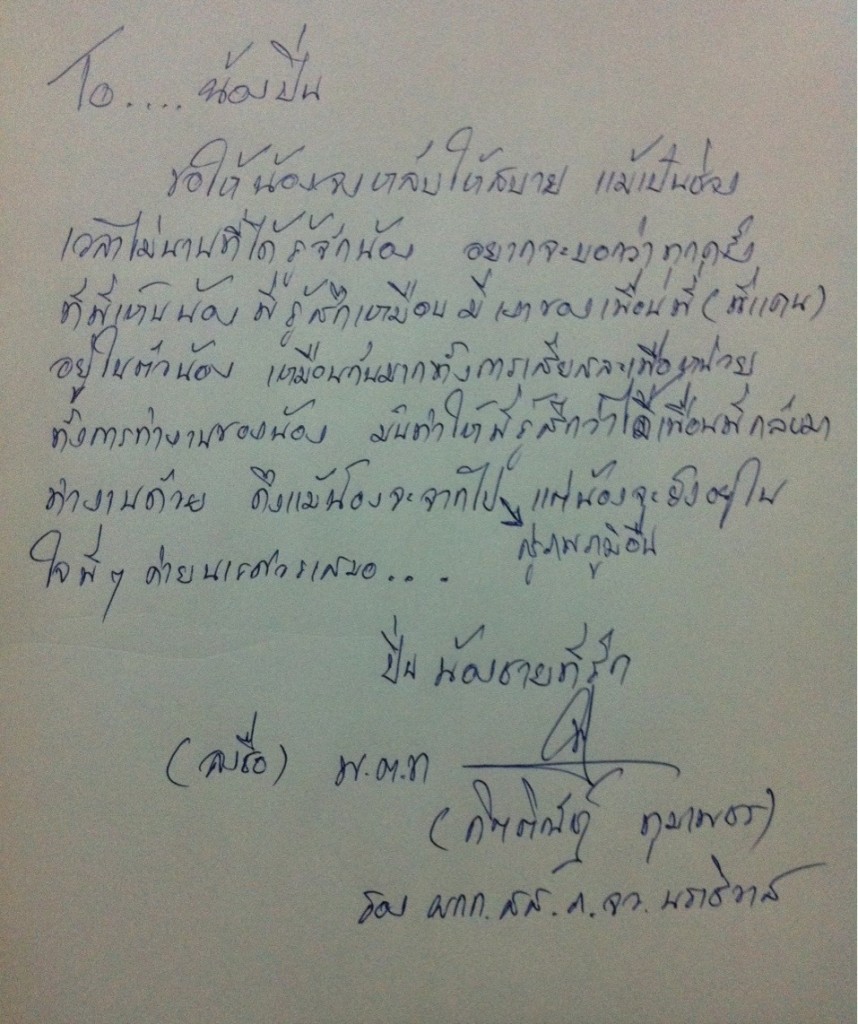 To.... น้องปื่น
ขอให้น้องจงหลับให้สบาย แม้เป็นช่วง
เวลาไม่นานที่ได้รู้จักน้อง อยากจะบอกว่าทุกครั้ง
ที่พี่เห็นน้อง พี่รู้สึกเหมือนมีเงาของเพื่อนพี่ (พี่แคน)
อยู่ในตัวน้อง เหมือนกันมากทั้งการเสียสละเพื่อหน่วย
ทั้งการทำงานของน้อง มันทำให้พี่รู้สึกว่าได้เพื่อนพี่กลับมา
ทำงานด้วย ถึงแม้น้องจะจากไป แต่น้องจะยังอยู่ใน
สู่ภพภูมิอื่น
ใจพี่ๆ ค่ายนเรศวรเสมอ...
ปื่น น้องชายที่รัก
(ลงชื่อ) พ.ต.ท
รอง ผกก. สส. ภ. จว. นราธิวาส